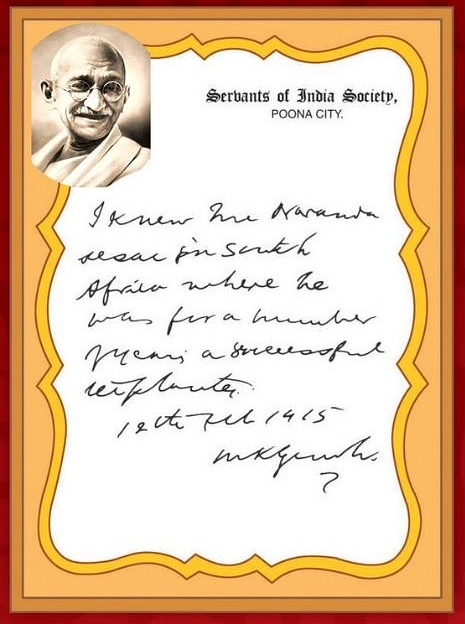 Servants of India Society,
POONA CITY.
I knew Mr
in South
Africa where he
was for a number
years a successful
12th Feb 1915
MKGandhi